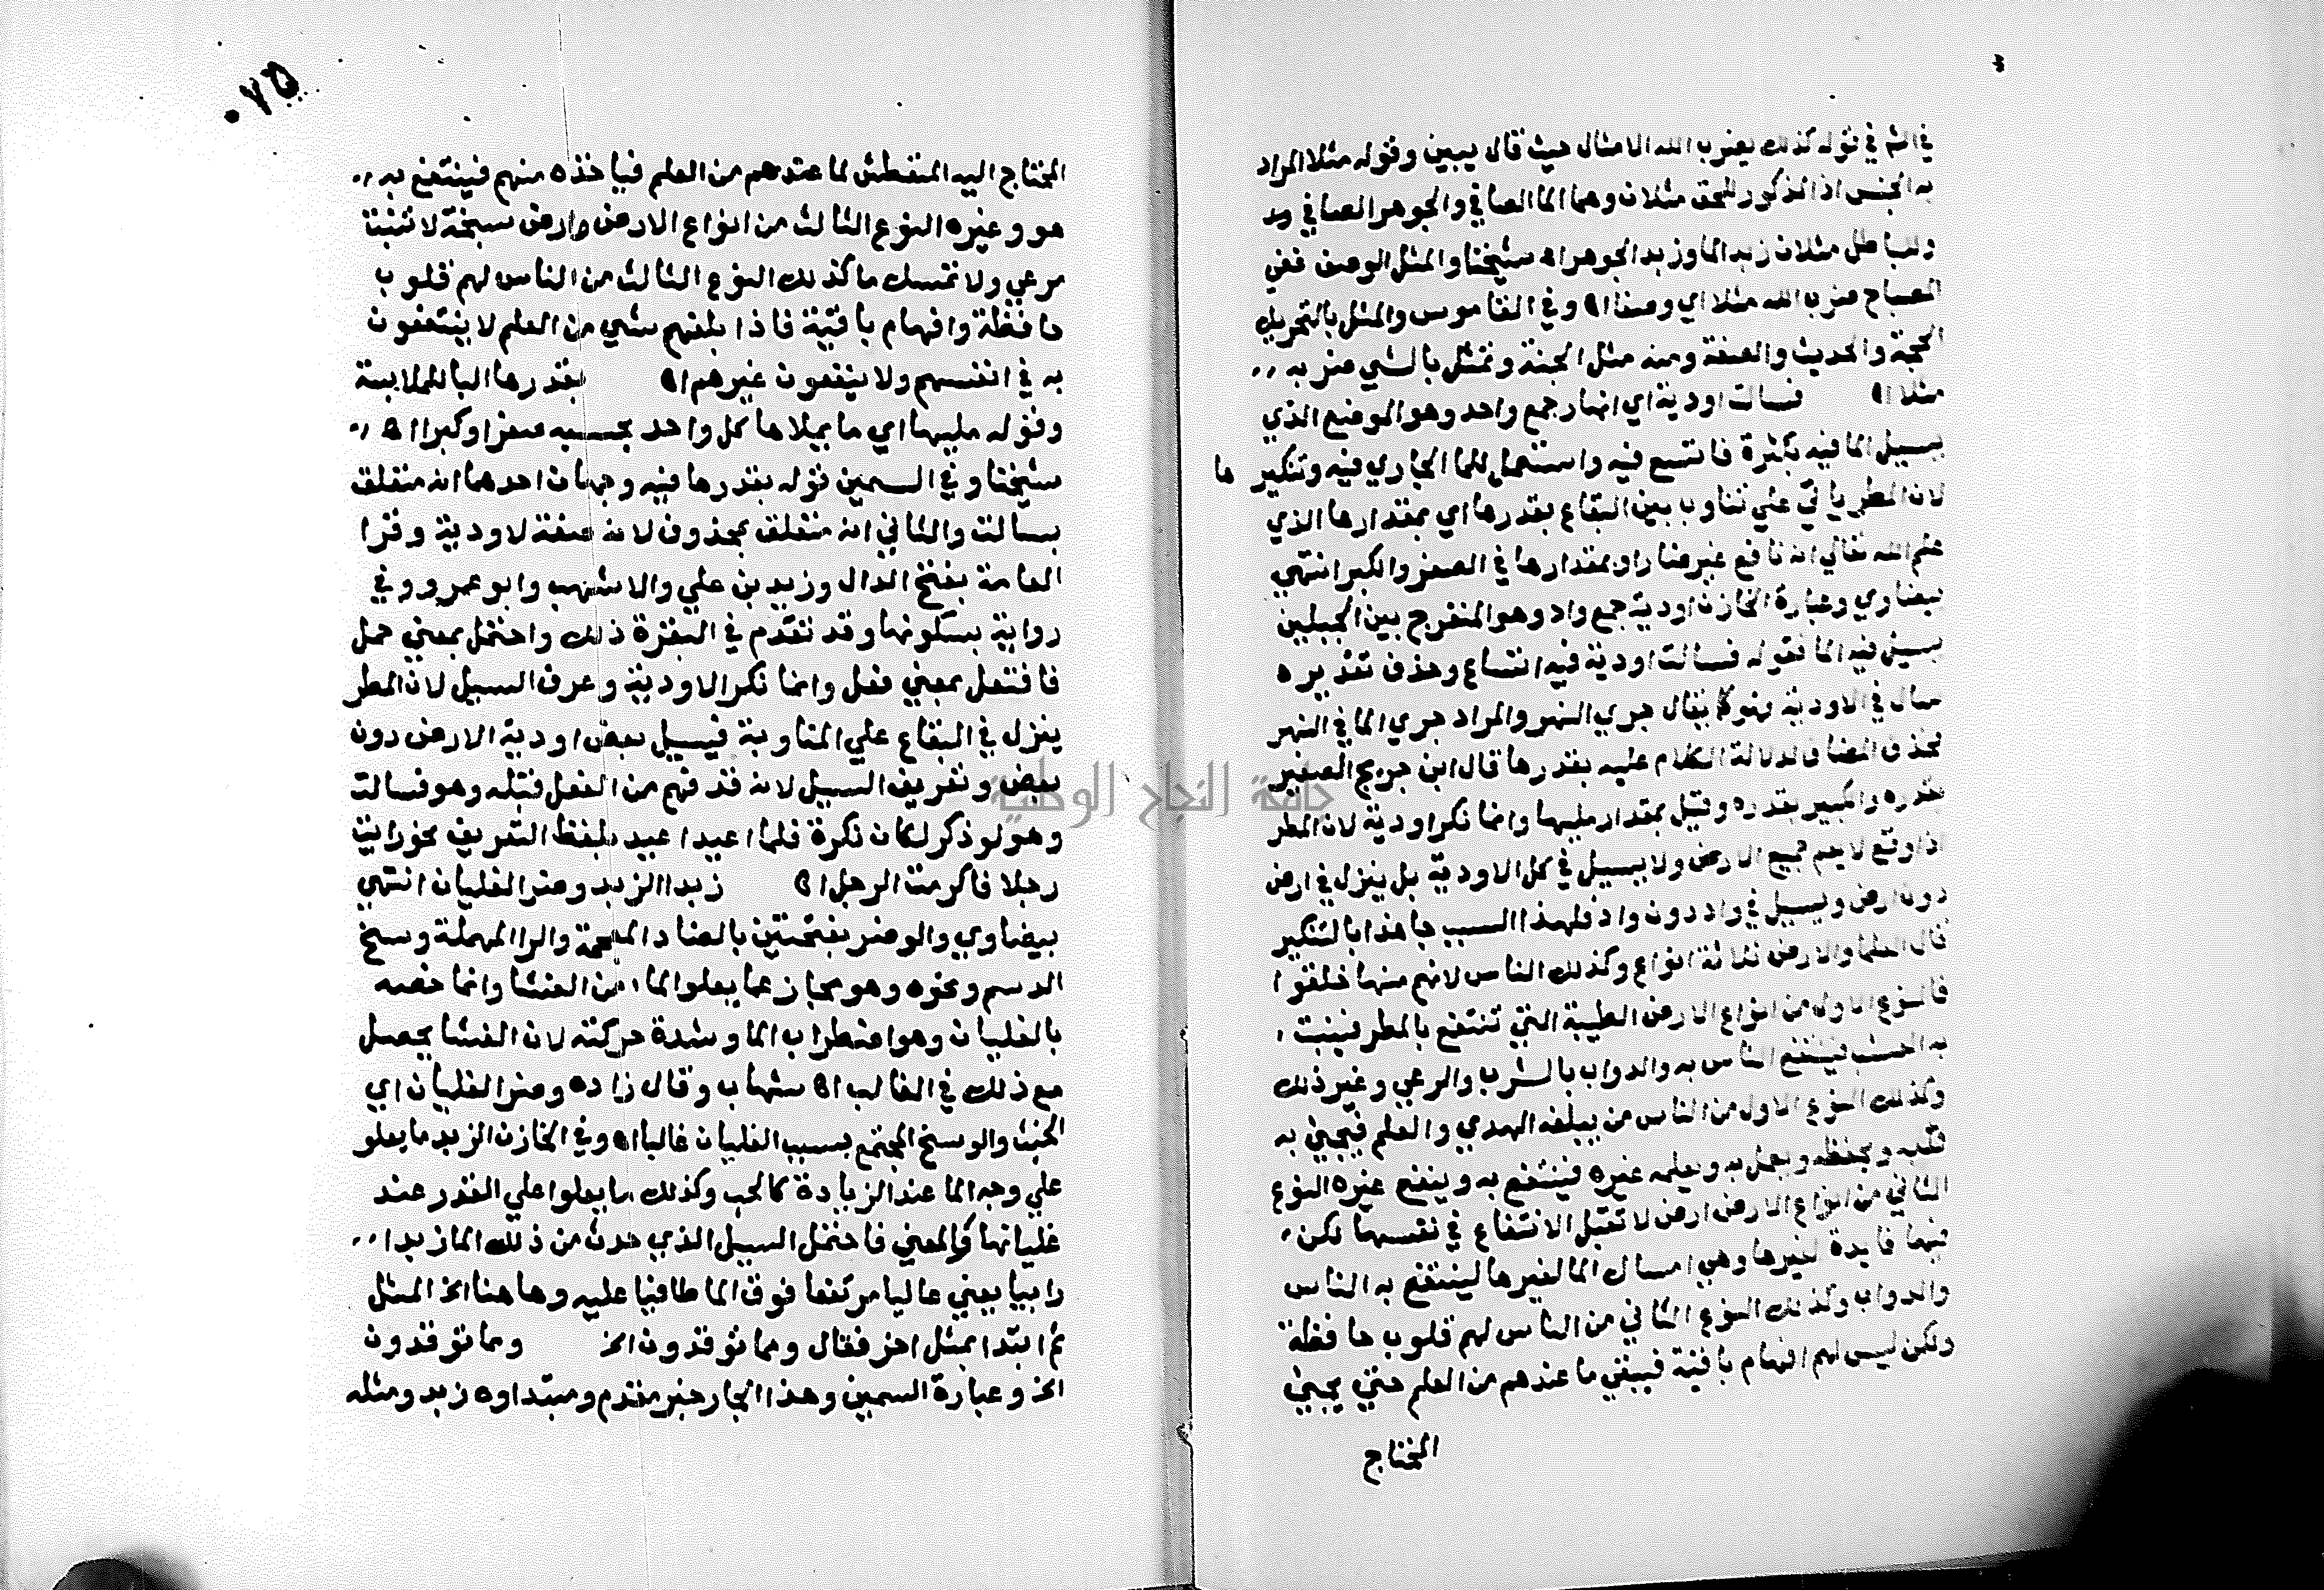 في اثم في قوله كذلك يضرب الله الامثال حيث قال يبين وقوله مثلا المراد
به الجنس اذ المذكور للحق مثلان وهما الما الصافي والجوهر الصافي
وللباطل مثلان زبد الما وزبد الجوهر اه شيخنا والمثل الوصف ففي
المصباح ضرب الله مثلا اي وصفا اه وفي القاموس والمثل بالتحريك
الحجة والحديث والصفة ومنه مثل الجنة وتمثل بالشي ضربه
مثلا اه فسالت اودية اي انهار جمع واحد وهو الموضع الذي
يسيل الما فيه بكثرة فاتسع فيه واستعمل للما الجاري فيه وتنكيرها
لان المطر ياتي علي تناوب بين البقاع بقدرها اي بمقدارها الذي
علم الله تعالي انه نافع غير ضار او بمقدارها في الصغر والكبر انتهي
بيضاوي وعبارة الخازن اودية جمع واد وهو المنفرج بين الجبلين
يسيل فيه الما فقوله فسالت اودية فيه اتساع وحذف تقديره
سال في الاودية فهو كما يقال جري النهر والمراد جري الما في النهر
فحذف المضاف لدلالة الكلام عليه بقدرها قال ابن جريج الصغير
بقدره والكبير بقدره وقيل بمقدار مليها وانما نكر اودية لان المطر
اذا وقع لا يعم جميع الارض ولا يسيل في كل الاودية بل ينزل في ارض
دون ارض ويسيل في واد دون واد فلهذا السبب جا هذا بالتنكير
قال العلما والارض ثلاثة انواع وكذلك الناس لانهم منها خلقوا
فالنوع الاول من انواع الارض الطيبة التي تنتفع بالمطر فينبت
به العشب فينتفع الناس به والدواب بالشرب والرعي وغير ذلك
وكذلك النوع الاول من الناس من يبلغه الهدي والعلم فيحيي به
قلبه ويحفظه ويعمل به ويعلمه غيره فينتفع به وينفع غيره النوع
الثاني من انواع الارض ارض لا تقبل الانتفاع في نفسها لكن
فيها فايدة لغيرها وهي امساك الما لغيرها لينتفع به الناس
والدواب وكذلك النوع الثاني من الناس لهم قلوب حافظة
ولكن ليس لهم افهام باقية فيبقي ما عندهم من العلم حتي يجيي
المحتاج
٠٧٥
المحتاج اليه المتعطش لما عندهم من العلم فياخذه منهم فينتفع به
هو وغيره النوع الثالث من انواع الارض وارض سبخة لا تنبت
مرعي ولا تمسك ما كذلك النوع الثالث من الناس لهم قلوب
حافظة وافهام باقية فاذا بلغهم شي من العلم لا ينتفعون
به في انفسهم ولا ينفعون غيرهم اه بقدرها البا للملابسة
وقوله مليها اي ما يملاها كل واحد بحسبه صغرا وكبرا اه
شيخنا وفي السمين قوله بقدرها فيه وجهان احدهما انه متعلق
بسالت والثاني انه متعلق بمحذوف لانه صفة لاودية وقرا
العامة بفتح الدال وزيد بن علي والاشهب وابو عمرو وفي
رواية بسكونها وقد تقدم في البقرة ذلك واحتمل بمعني حمل
فافتعل بمعني فعل وانما نكر الاودية وعرف السيل لان المطر
ينزل في البقاع علي المناوبة فيسيل بعض اودية الارض دون
بعض وتعريف السيل لانه قد فهم من الفعل قبله وهو فسالت
وهو لو ذكر لكان نكرة فلما اعيد اعيد بلفظ التعريف نحو رايت
رجلا فاكرمت الرجل اه زبدا الزبد وضر الغليان انتهي
بيضاوي والوضر بفتحتين بالضاد المعجمة والرا المهملة وسخ
الدسم ونحوه وهو مجاز عما يعلو الما من الغثا وانما خصه
بالغليان وهو اضطراب الما وشدة حركته لان الغثا يحصل
مع ذلك في الغالب اه شهاب وقال زاده وضر الغليان اي
الخبث والوسخ المجتمع بسبب الغليان غالبا اه وفي الخازن الزبد ما يعلو
علي وجه الما عند الزيادة كالحبب وكذلك ما يعلوا علي القدر عند
غليانها والمعني فاحتمل السيل الذي حدث من ذلك الما زبدا
رابيا يعني عاليا مرتفعا فوق الما طافيا عليه وها هنا اخر المثل
ثم ابتدا بمثل اخر فقال ومما توقدون الخ ومما توقدون
الخ وعبارة السمين وهذا الجار خبر مقدم ومبتداوه زبد ومثله
جامعة النجاح الوطنية